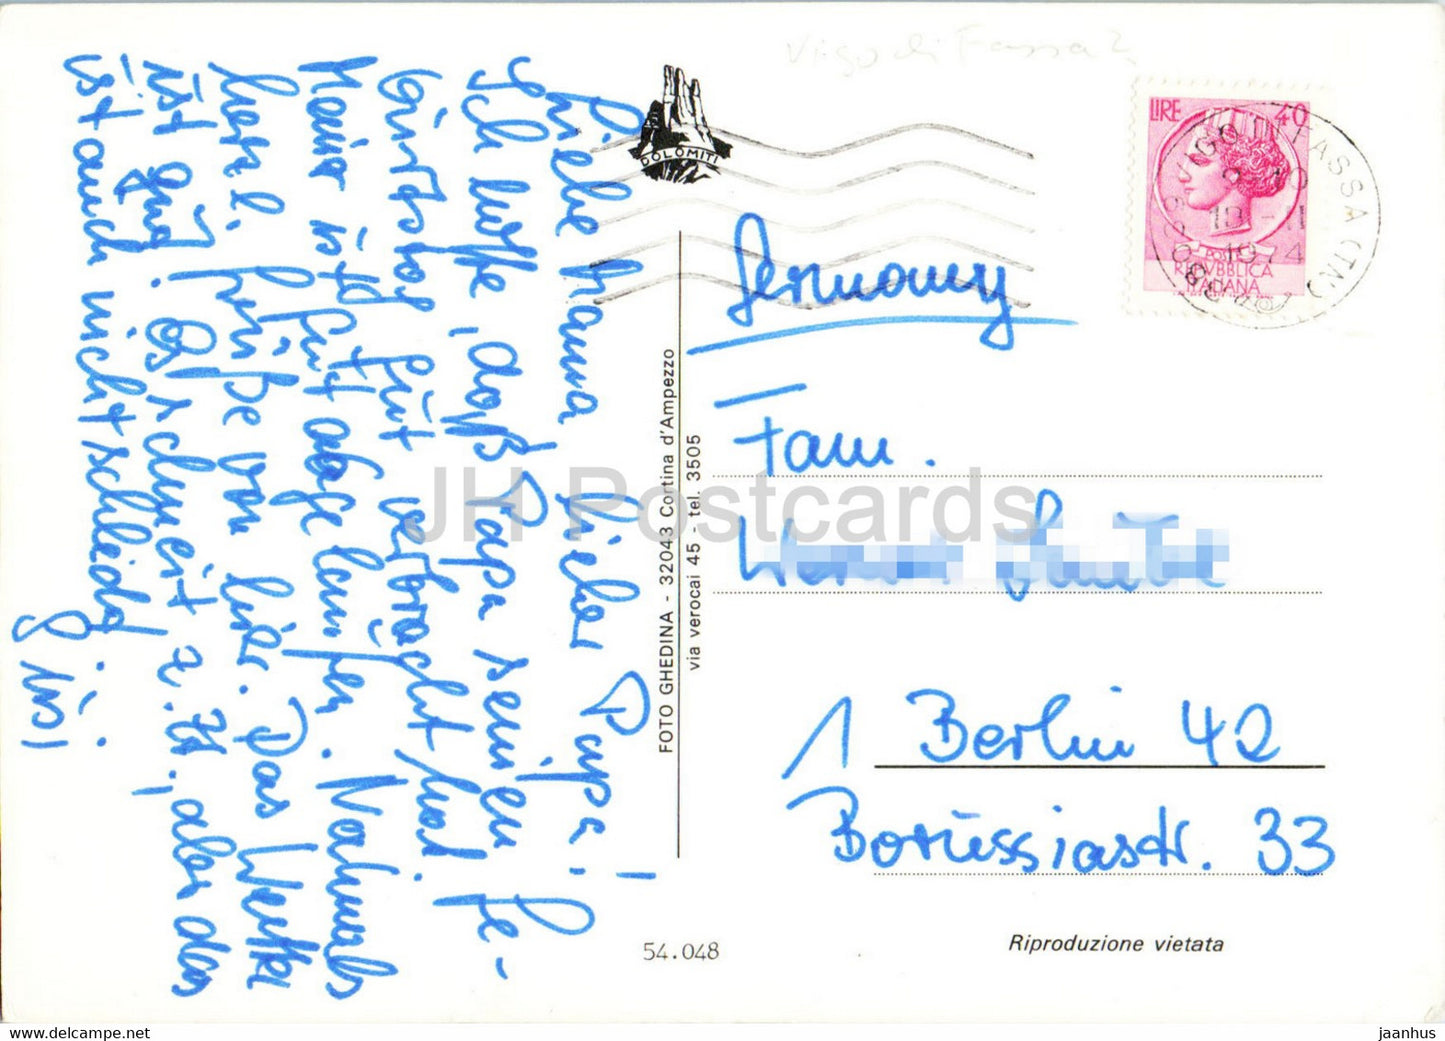 Liebe Mama, lieber Papa!
Ich hoffe, daß Papa seinen Ge-
burtstag gut verbracht hat.
Meiner ist gut abgelaufen. Nochmals
herzl. Grüße von hier. Das Wetter
ist gut! Es schneit z. Zt., aber das
ist auch nicht schlecht.
Gisi
Vigo di Fassa?
DOLOMITI
LIRE 40
POSTE
REPVBBLICA
ITALIANA
VIGO DI FASSA (TN)
10-11
1974
Germany
Fam.
1 Berlin 42
Borussiastr. 33
FOTO GHEDINA - 32043 Cortina d'Ampezzo
via verocai 45 - tel. 3505
54.048
Riproduzione vietata
JH Postcards
www.delcampe.net
jaanhus